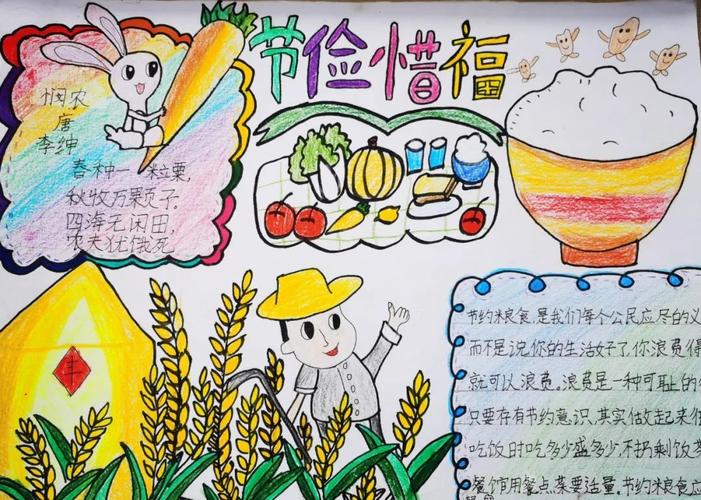 节俭惜福
悯农
唐
李绅
春种一粒粟,
秋收万颗子.
四海无闲田,
农夫犹饿死
丰
节约粮食,是我们每个公民应尽的义
而不是说,你的生活好了,你浪费得
就可以浪费。浪费是一种可耻的
只要存有节约意识,其实做起来
吃饭时吃多少盛多少,不扔剩饭
餐馆用餐点菜要适量,节约粮食应